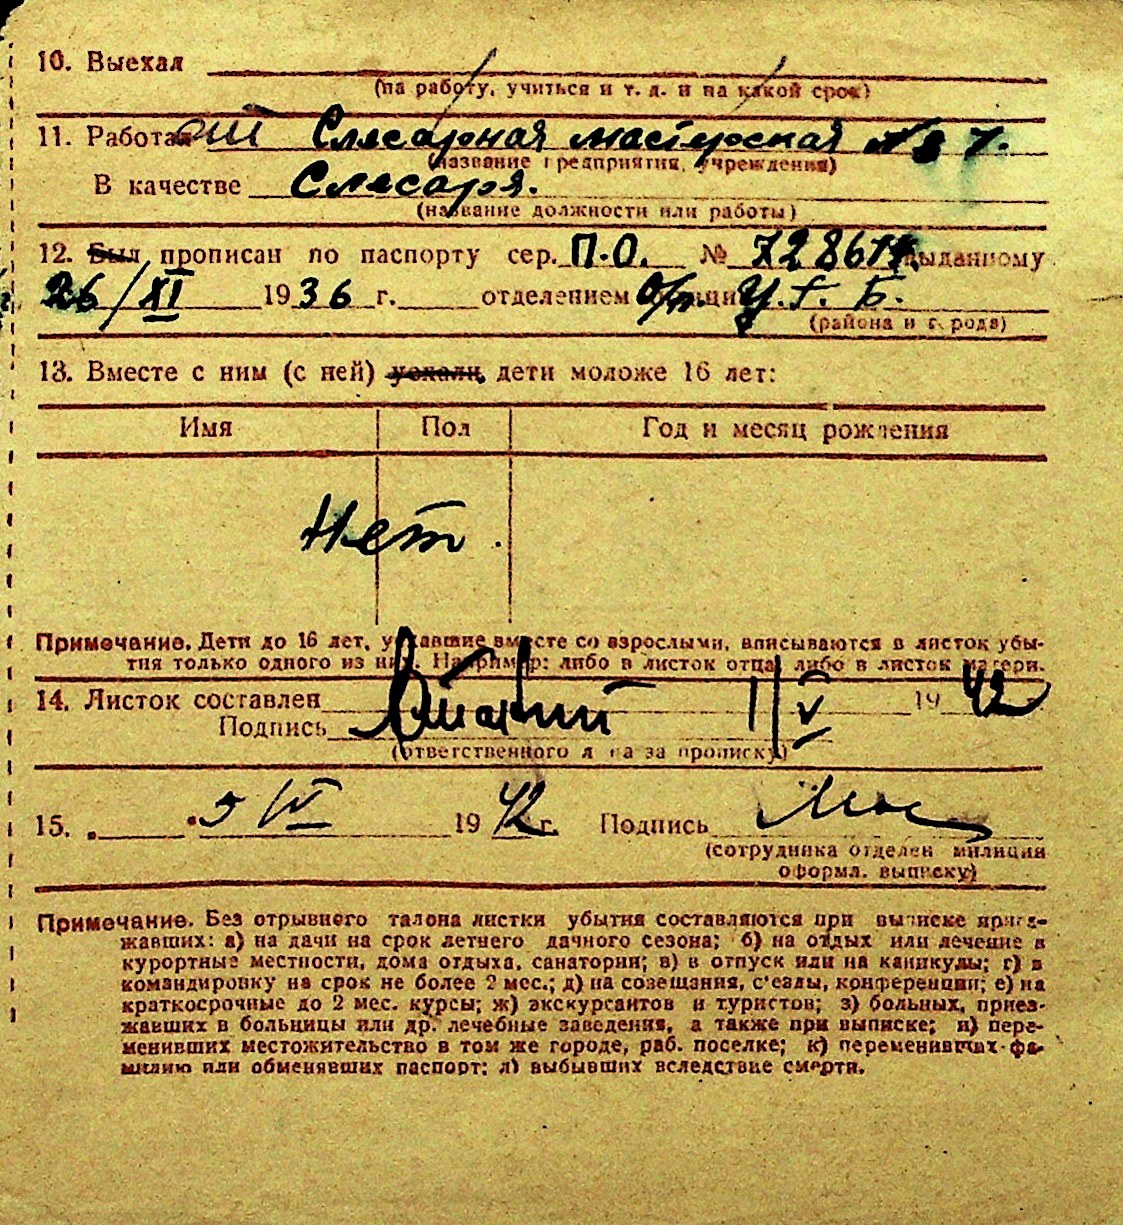 10. Выехал
(на работу, учиться и т. д. и на какой срок)
11. Работаюий Слесарная мастерская №
(название предприятия, учреждения)
В качестве Слесаря.
(название должности или работы)
12. Был прописан по паспорту сер. П.О. № выданному
26/XI 1936 г. отделением
(района и города)
13. Вместе с ним (с ней) уехали, дети моложе 16 лет:
Имя Пол Год и месяц рождения
Нет.
Примечание. Дети до 16 лет, уехавшие вместе со взрослыми, вписываются в листок убы-
тия только одного из них. Например: либо в листок отца, либо в листок матери.
14. Листок составлен 1/V 1942
Подпись
(ответственного лица за прописку)
15. 5 IV 1942 г. Подпись
(сотрудника отделен. милиции
оформл. выписку)
Примечание. Без отрывного талона листки убытия составляются при выписке приез-
жавших: а) на дачи на срок летнего дачного сезона; б) на отдых или лечение в
курортные местности, дома отдыха, санатории; в) в отпуск или на каникулы; г) в
командировку на срок не более 2 мес.; д) на совещания, с'езды, конференции; е) на
краткосрочные до 2 мес. курсы; ж) экскурсантов и туристов; з) больных, приез-
жавших в больницы или др. лечебные заведения, а также при выписке; и) пере-
менивших местожительство в том же городе, раб. поселке; к) переменивших фа-
милию или обменявших паспорт; л) выбывших вследствие смерти.